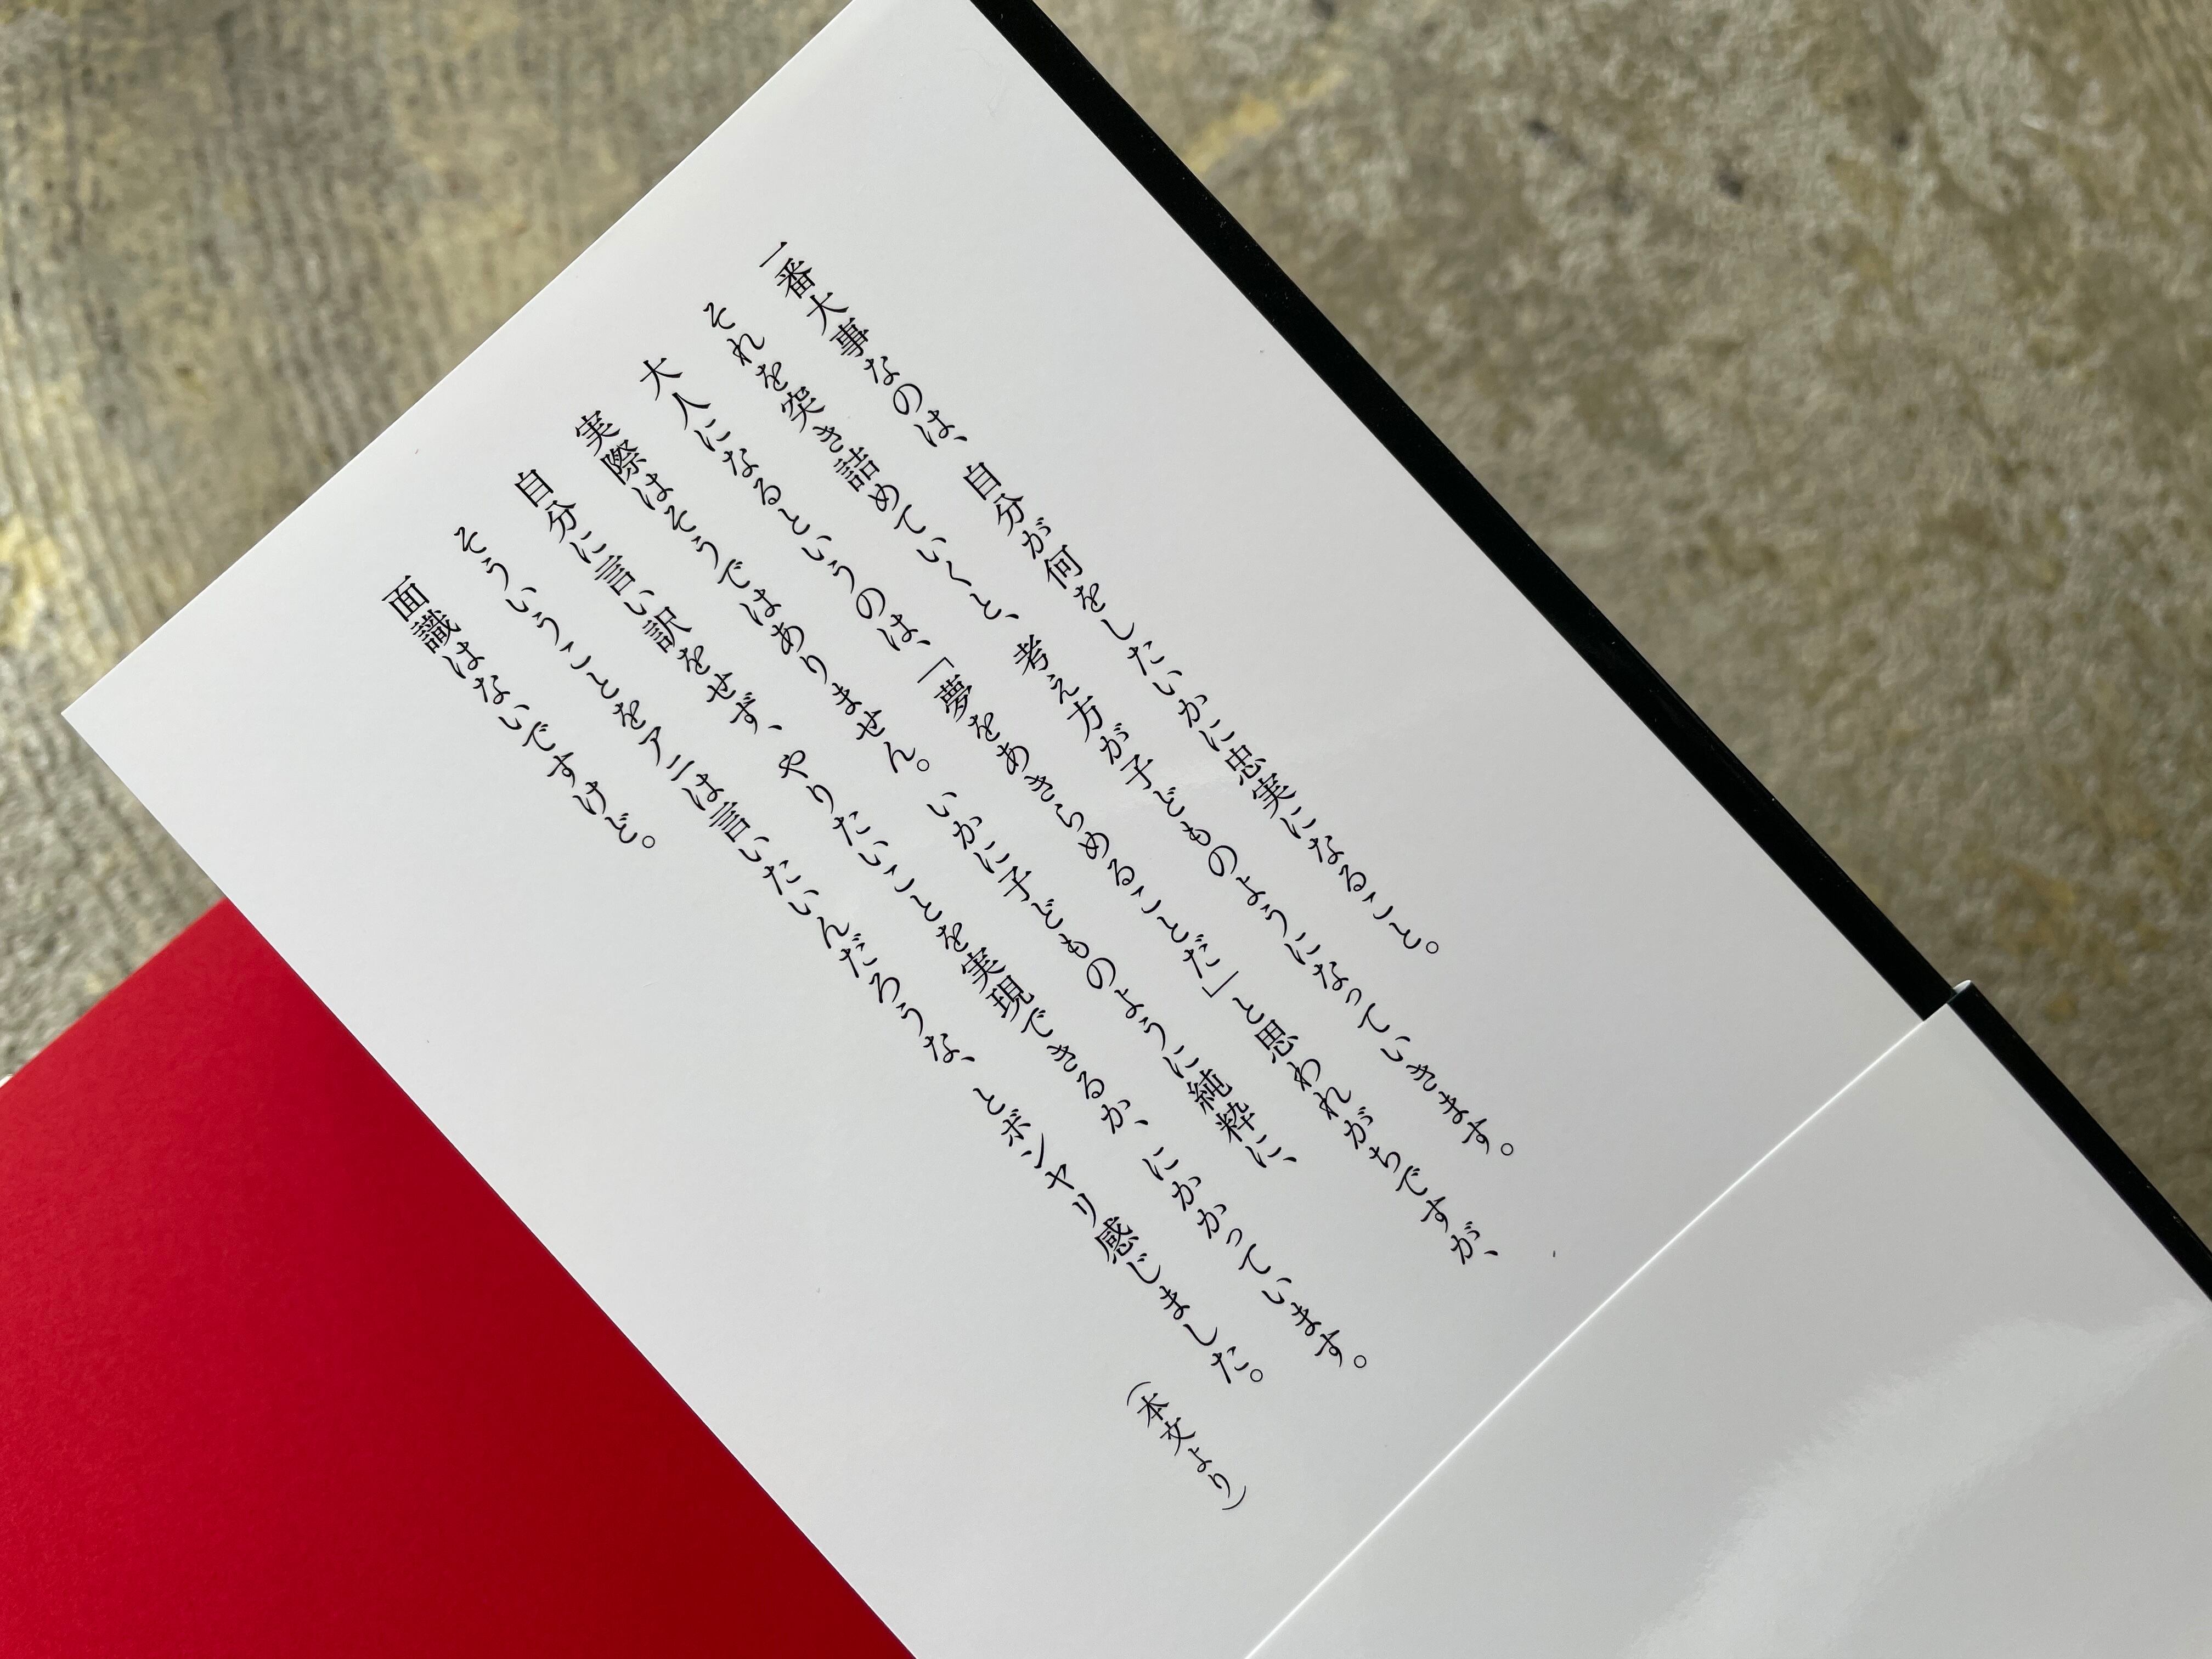 一番大事なのは、自分が何をしたいかに忠実になること。
それを突き詰めていくと、考え方が子どものようになっていきます。
大人になるというのは、「夢をあきらめることだ」と思われがちですが、
実際はそうではありません。いかに子どものように純粋に、
自分に言い訳をせず、やりたいことを実現できるか、にかかっています。
そういうことをアニは言いたいんだろうな、とボンヤリ感じました。
面識はないですけど。
(本文より)